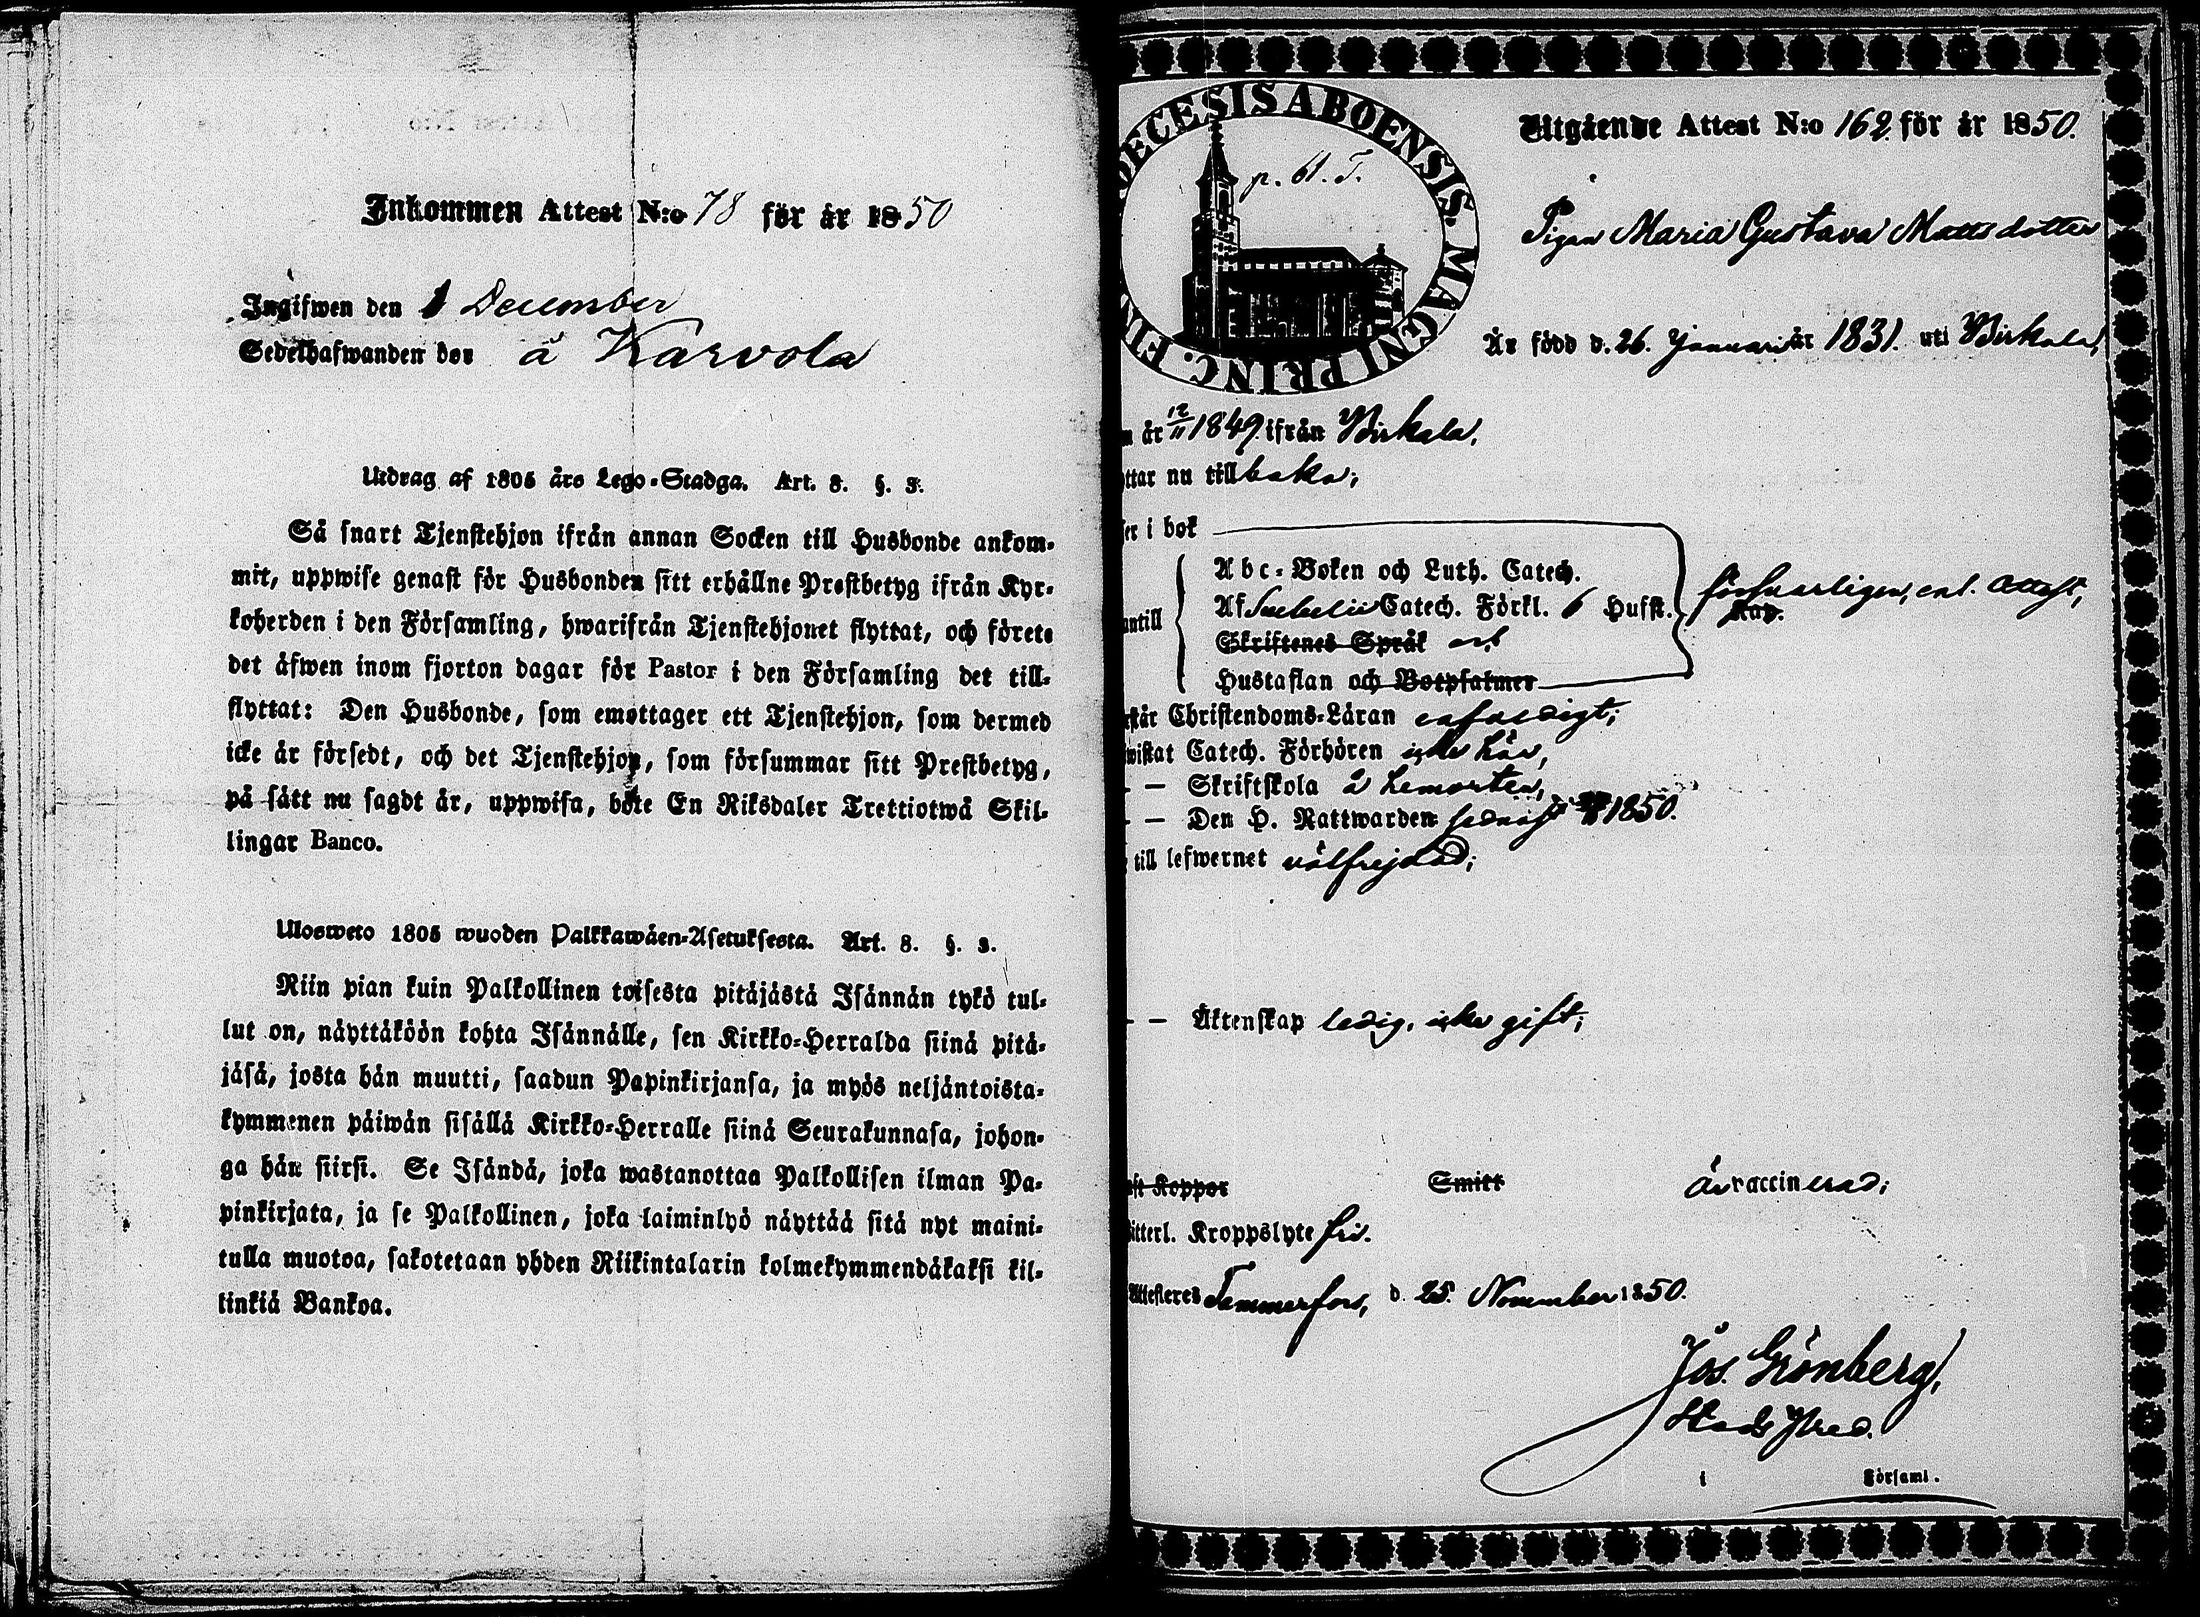 Inkommen Attest N:o 78 för år 1850
Ingifwen den 1 December
Sedelhafwanden bor å Karvola
Utdrag af 1805 års Lego-Stadga. Art. 8. §. 3.
Så snart Tjenstehjon ifrån annan Socken till Husbonde ankom-
mit, uppwise genast för Husbonden sitt erhållne Prestbetyg ifrån Kyr-
koherden i den Församling, hwarifrån Tjenstehjonet flyttat, och förete
det åfwen inom fjorton dagar för Pastor i den Församling det till-
flyttat: Den Husbonde, som emottager ett Tjenstehjon, som dermed
icke är försedt, och det Tjenstehjon, som försummar sitt Prestbetyg,
på sätt nu sagdt är, uppwisa, böte En Riksdaler Trettiotwå Skil-
lingar Banco.
Ulosweto 1805 wuoden Palkkawäen-Asetuksesta. Art. 8. §. 3.
Niin pian kuin Palkollinen toisesta pitäjästä Isännän tykö tul-
lut on, näyttäköön kohta Isännälle, sen Kirkko-Herralda siinä pitä-
jäsä, josta hän muutti, saadun Papinkirjansa, ja myös neljäntoista-
kymmenen päiwän sisällä Kirkko-Herralle siinä Seurakunnasa, johon-
ga hän siirsi. Se Isändä, joka wastanottaa Palkollisen ilman Pa-
pinkirjata, ja se Palkollinen, joka laiminlyö näyttää sitä nyt maini-
tulla muotoa, sakotetaan yhden Riikintalarin kolmekymmendäkaksi kil-
linkiä Bankoa.
ECESIS ABOENSIS. MAGNI PRINC. FIN
p. 61. T.
Utgående Attest N:o 162 för år 1850.
Pigan Maria Gustava Mattsdotter
Är född d. 26. Januari år 1831. uti Birkala,
n år 12/11 1849 ifrån Birkala,
ttar nu tillbaka;
ser i bok
Abc-Boken och Luth. Catech.
Af Svebelii Catech. Förkl. 6 Hufst. försvarligen, enl. attest, Kap.
antill
Skriftenes Språk
Hustaflan och Botpsalmer
rstår Christendoms-Läran enfaldigt;
wistat Catech. Förhören icke här,
– – Skriftskola å hemorten,
– – Den H. Nattwarden sednast 1850.
till lefwernet välfrejdad;
– – Äktenskap ledig, icke gift;
ft Koppor Smitt är vaccinerad;
itterl. Kroppslyte fri.
Attesteres Tammerfors, d. 25. November 1850.
Jos. Grönberg,
Stads Pred.
i Församl.